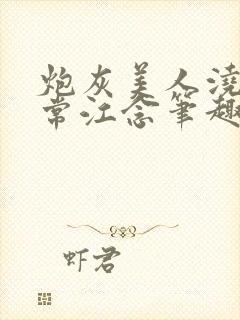 炮灰美人浇
常江念笔趣
虾君